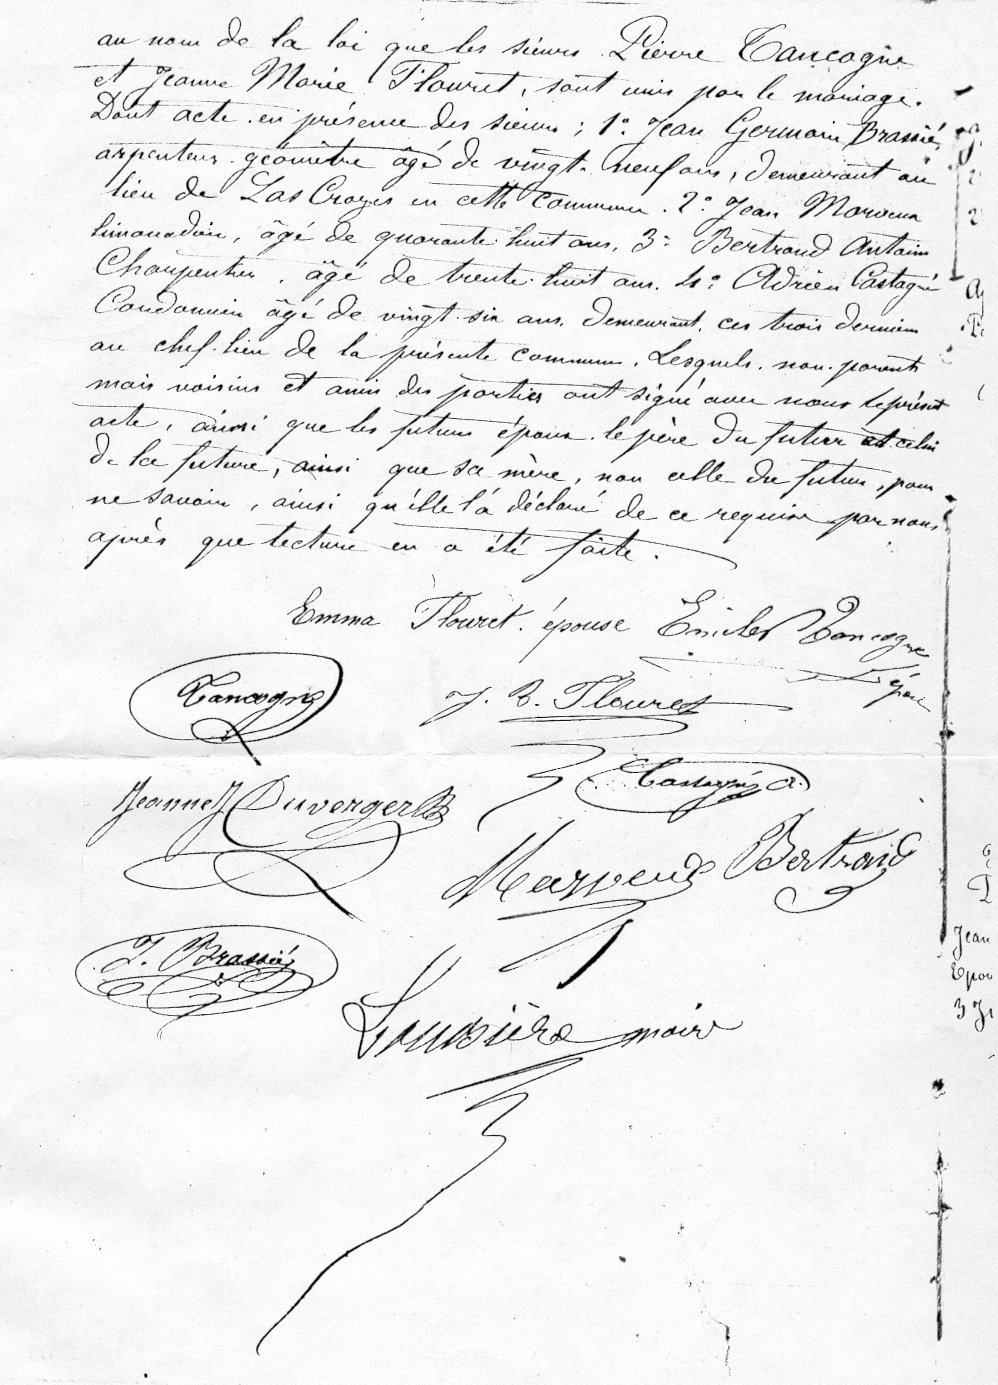 au nom de la loi que les sieurs Pierre Tancogne
et Jeanne Marie Flouret, sont unis par le mariage.
Dont acte en présence des sieurs ; 1° Jean Germain Brassié,
arpenteur géomètre âgé de vingt-neuf ans, demeurant au
lieu de Las Crozes en cette commune. 2° Jean Marveux
limonadier, âgé de quarante-huit ans, 3° Bertrand Antoine
Charpentier, âgé de trente-huit ans. 4° Adrien Castagné
Cordonnier âgé de vingt-six ans, demeurant, ces trois derniers
au chef-lieu de la présente commune. Lesquels, non parents
mais voisins et amis des parties ont signé avec nous le présent
acte, ainsi que les futurs époux, le père du futur et celui
de la future, ainsi que sa mère, non celle du futur, pour
ne savoir, ainsi qu'elle l'a déclaré de ce requise par nous,
après que lecture en a été faite.
Emma Flouret épouse Emile Tancogne
époux
Tancogne J. B. Flouret
Castagné A.
Jeanne Duverger
Bertrand
J. Brassié
maire
Jean
Epou
3 J